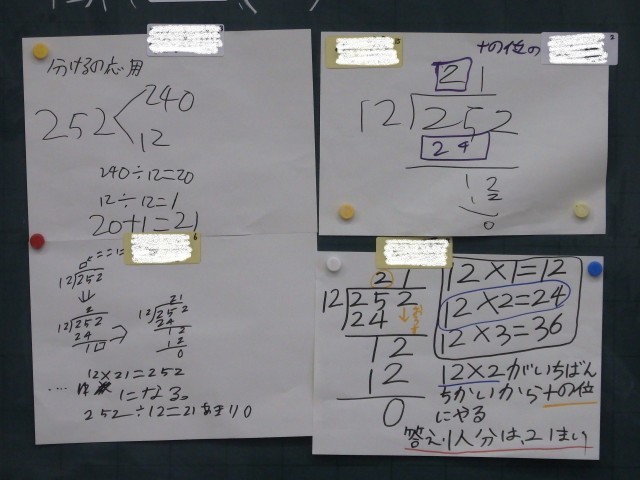 分けるの応用
252 < 240
12
240÷12=20
12÷12=1
20+1=21
十の位の
21
12)252
24
12
12
0
0
12)252
2
12)252
24
1□
21
12)252
24
12
12
0
12×21=252
になる。
252÷12=21あまり0
21
12)252
24
12
12
0
12×1=12
12×2=24
12×3=36
12×2がいちばん
ちかいから十の位
にやる
答え1人分は、21まい